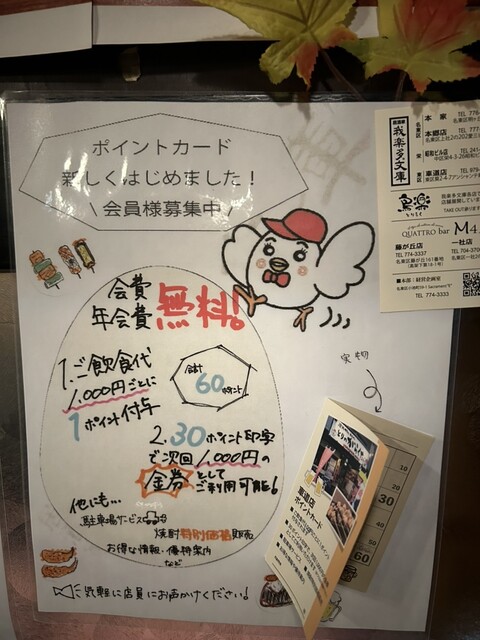 ポイントカード
新しくはじめました！
\ 会員様募集中 /
会費
年会費 無料!
1. ご飲食代
1,000円ごとに
1ポイント付与
合計
60ポイント
2. 30ポイント印字
で次回1,000円の
金券として
ご利用可能!
他にも…
駐車場サービス
焼酎特別価格販売
お得な情報・優待案内
など
気軽に店員にお声かけください!
実物
車道店
ポイントカード
10
20
30
60
我楽多文庫
本家
TEL 776-
本郷店
TEL 777-
昭和ビル店
TEL 241-
車道店
TEL 979-
鳥楽
とりらく
TAKE OUT
QUATTRO bar M4
藤が丘店
TEL 774-3337
一社店
TEL 704-
TEL 774-3333